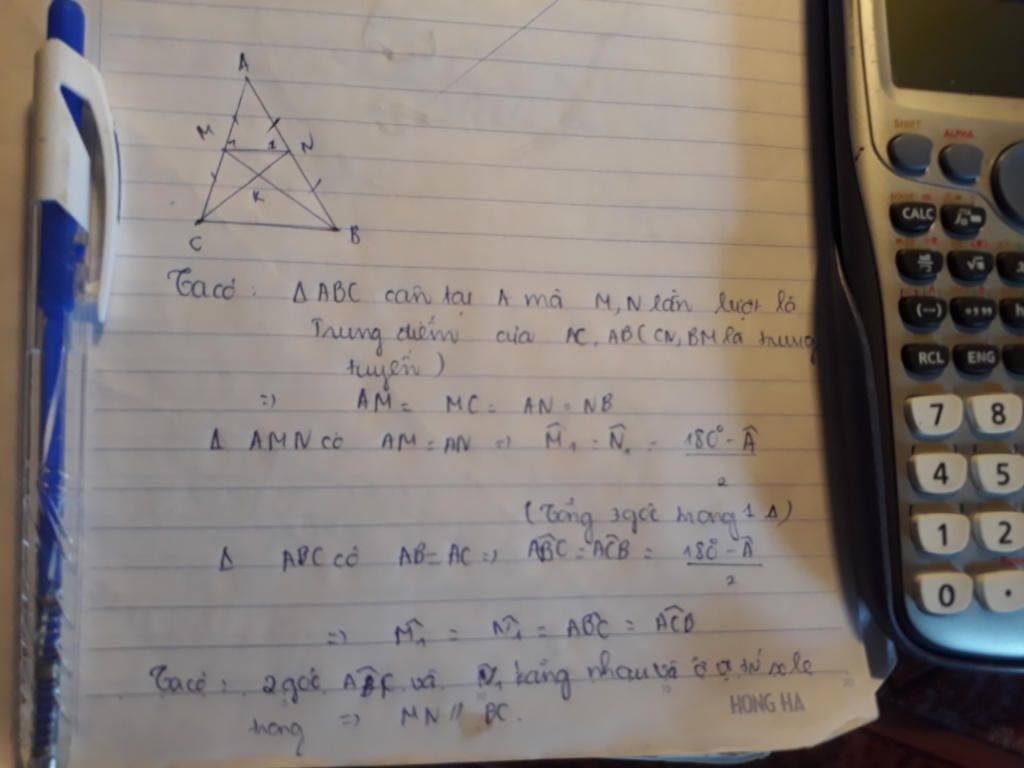 A
M
1
1
N
K
C
B
Ta có: Δ ABC cân tại A mà M, N lần lượt là
Trung điểm của AC, AB (CN, BM là trung
tuyến)
=> AM = MC = AN = NB
Δ AMN có AM = AN => M̂₁ = N̂₁ = (180° - Â)/2
(Tổng 3 góc trong 1 Δ)
Δ ABC có AB = AC => AB̂C = AĈB = (180° - Â)/2
=> M̂₁ = N̂₁ = AB̂C = AĈB
Ta có: 2 góc AB̂C và N̂₁ bằng nhau và ở vị trí so le
trong => MN // BC.
10
15
20
HONG HA
SHIFT
ALPHA
CALC
(-)
RCL
ENG
7
8
4
5
1
2
0